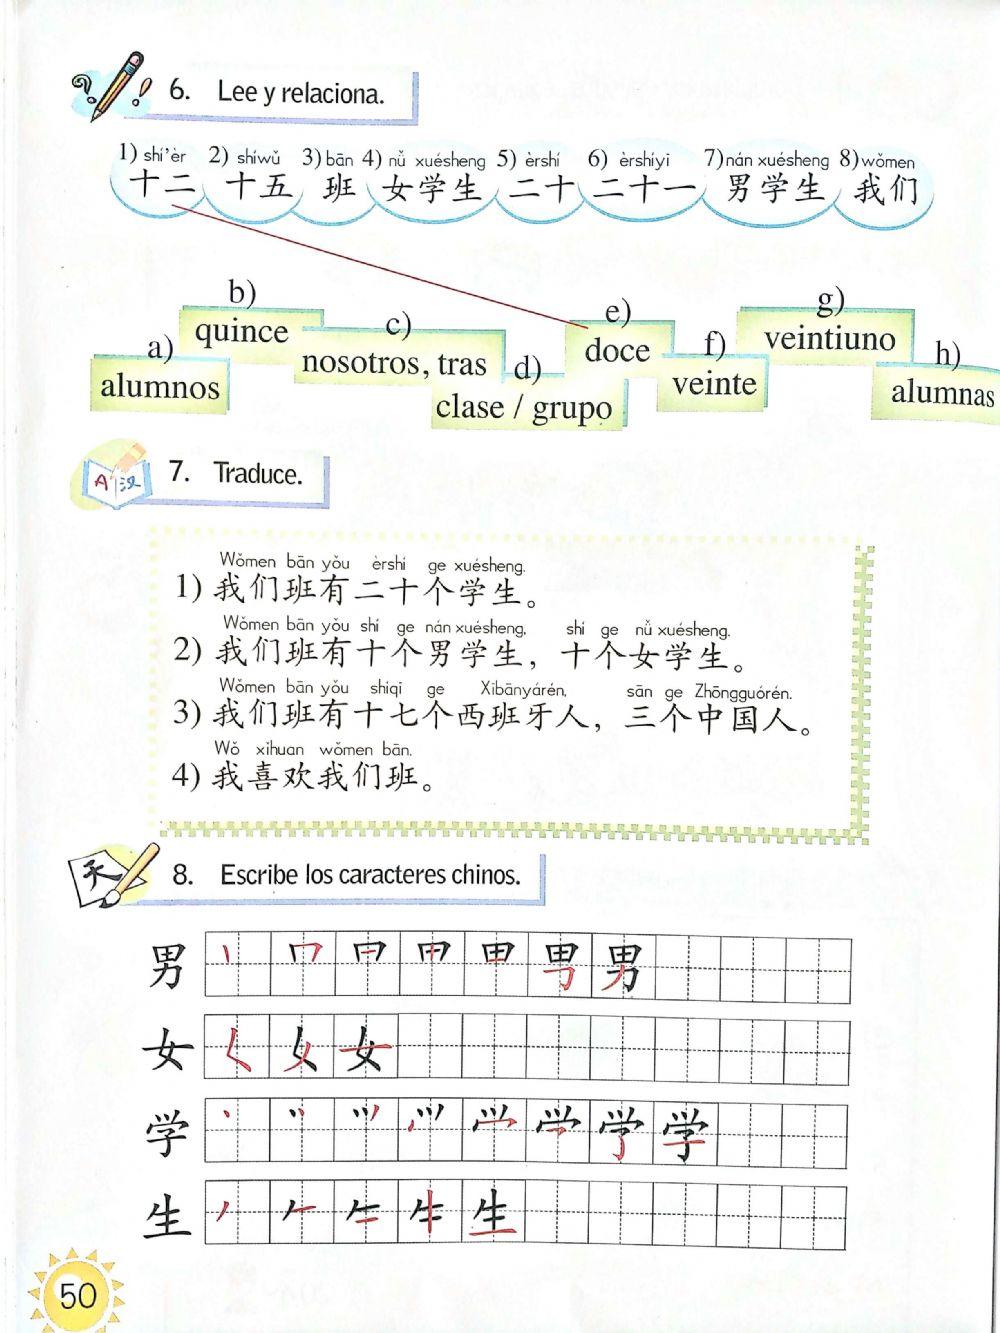 6. Lee y relaciona.
1) shí'èr 2) shíwǔ 3) bān 4) nǚ xuésheng 5) èrshí 6) èrshíyī 7) nán xuésheng 8) wǒmen
十二 十五 班 女学生 二十 二十一 男学生 我们
b) quince
c) nosotros, tras
e) doce
g) veintiuno
a) alumnos
d) clase / grupo
f) veinte
h) alumnas
A 汉
7. Traduce.
Wǒmen bān yǒu èrshí ge xuésheng.
1) 我们班有二十个学生。
Wǒmen bān yǒu shí ge nán xuésheng, shí ge nǚ xuésheng.
2) 我们班有十个男学生，十个女学生。
Wǒmen bān yǒu shíqī ge Xībānyárén, sān ge Zhōngguórén.
3) 我们班有十七个西班牙人，三个中国人。
Wǒ xǐhuan wǒmen bān.
4) 我喜欢我们班。
天
8. Escribe los caracteres chinos.
男
女
学
生
50